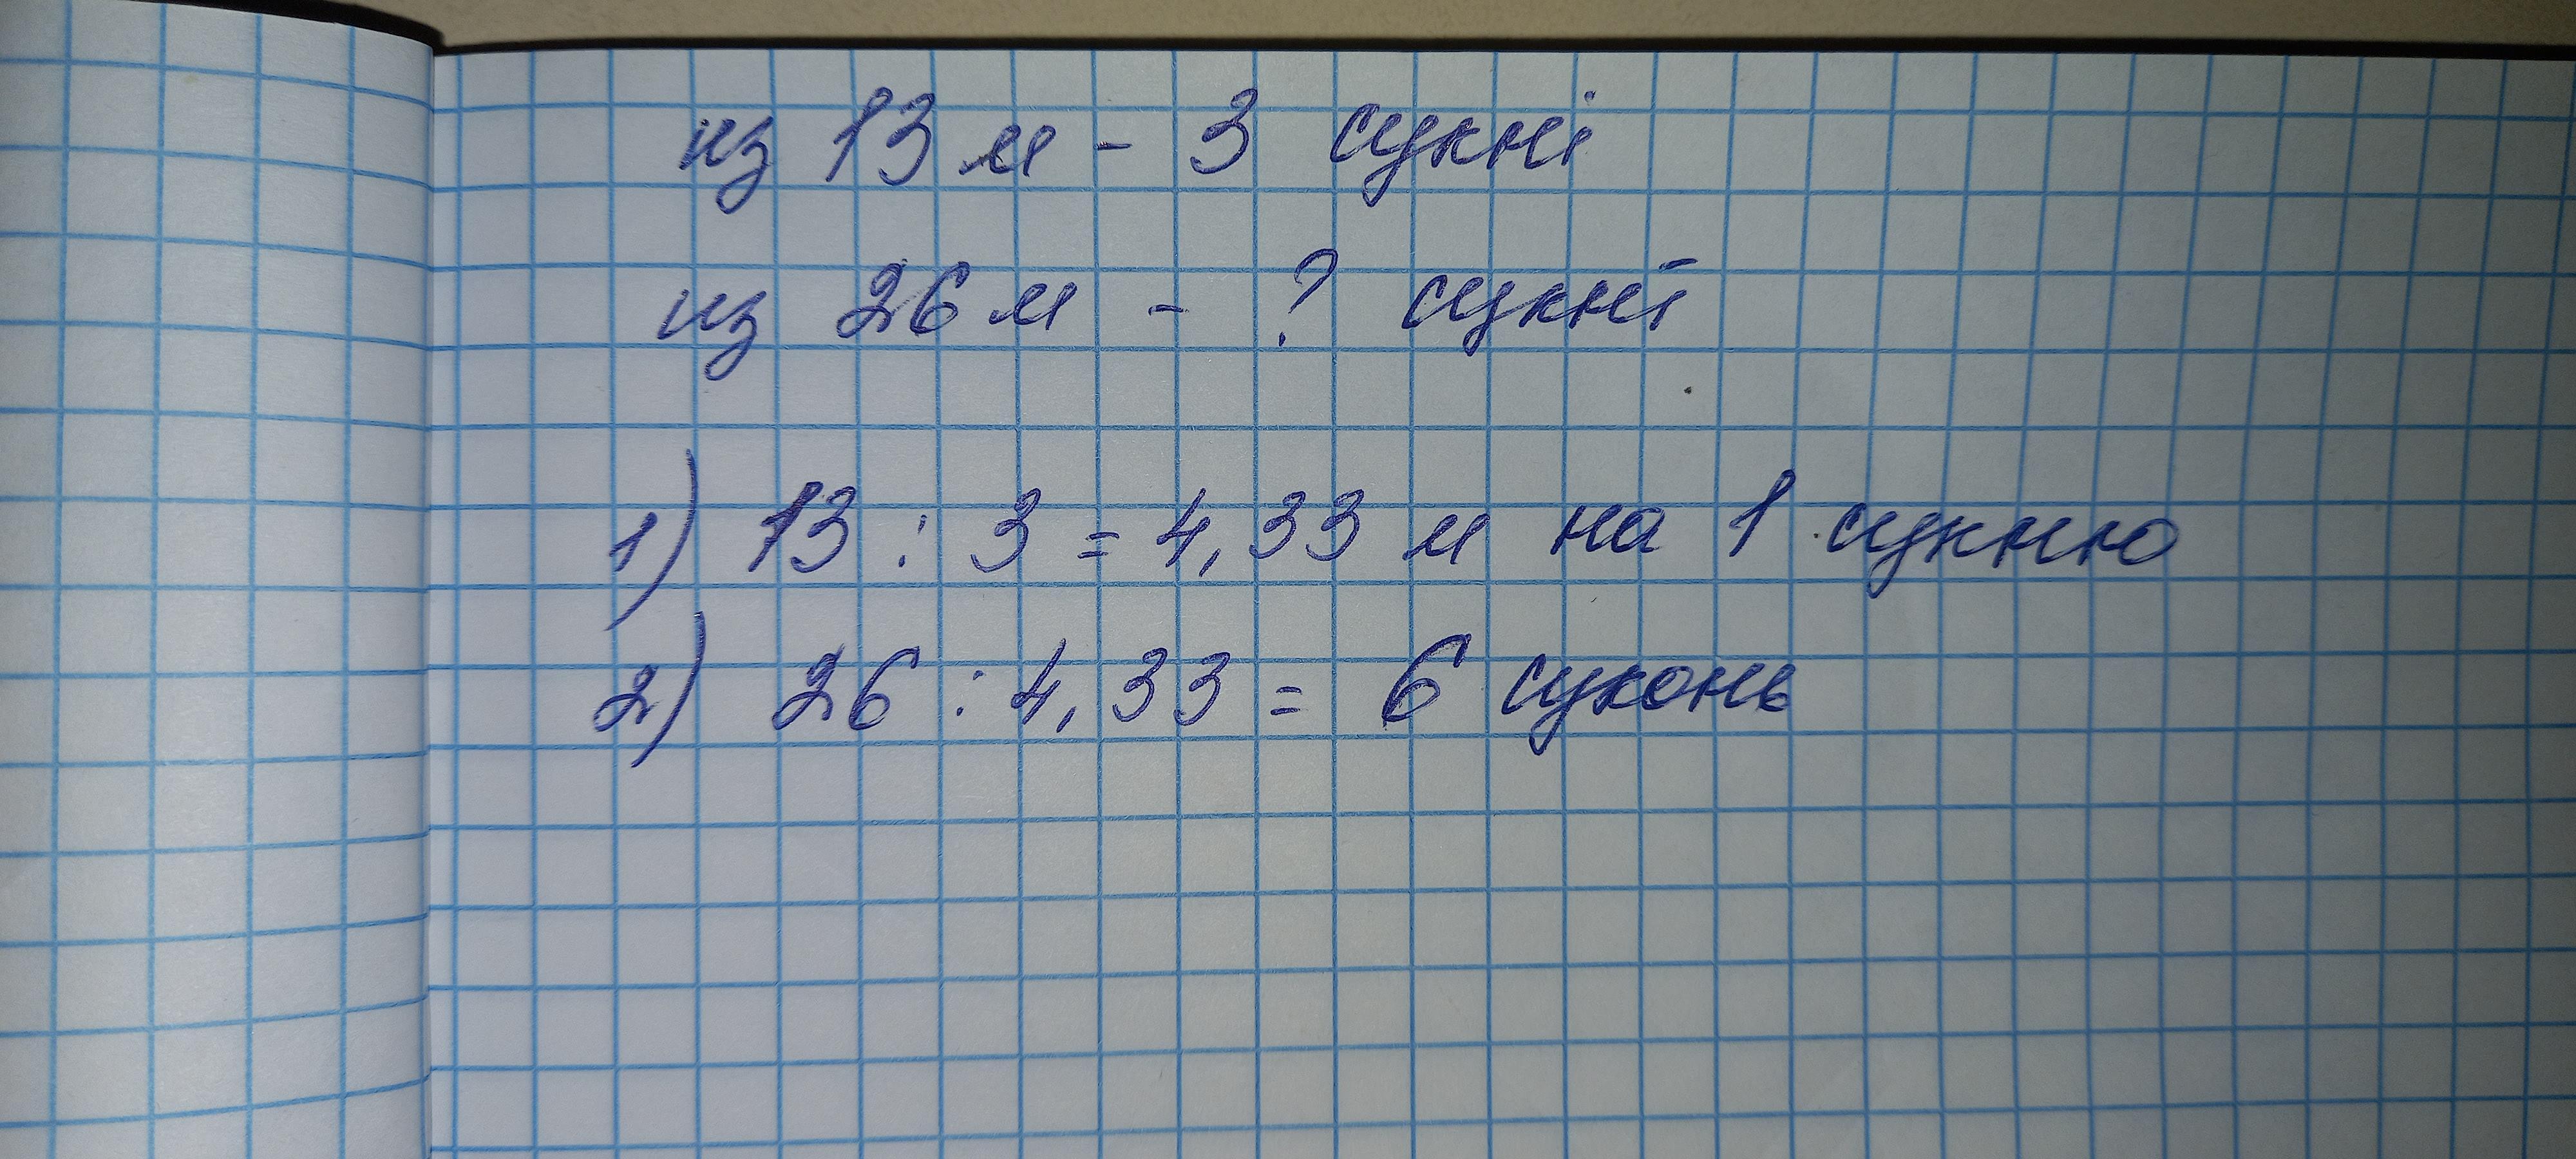 из 13 м - 3 сукні
из 26 м - ? сукні
1) 13 : 3 = 4,33 м на 1 сукню
2) 26 : 4,33 = 6 суконь